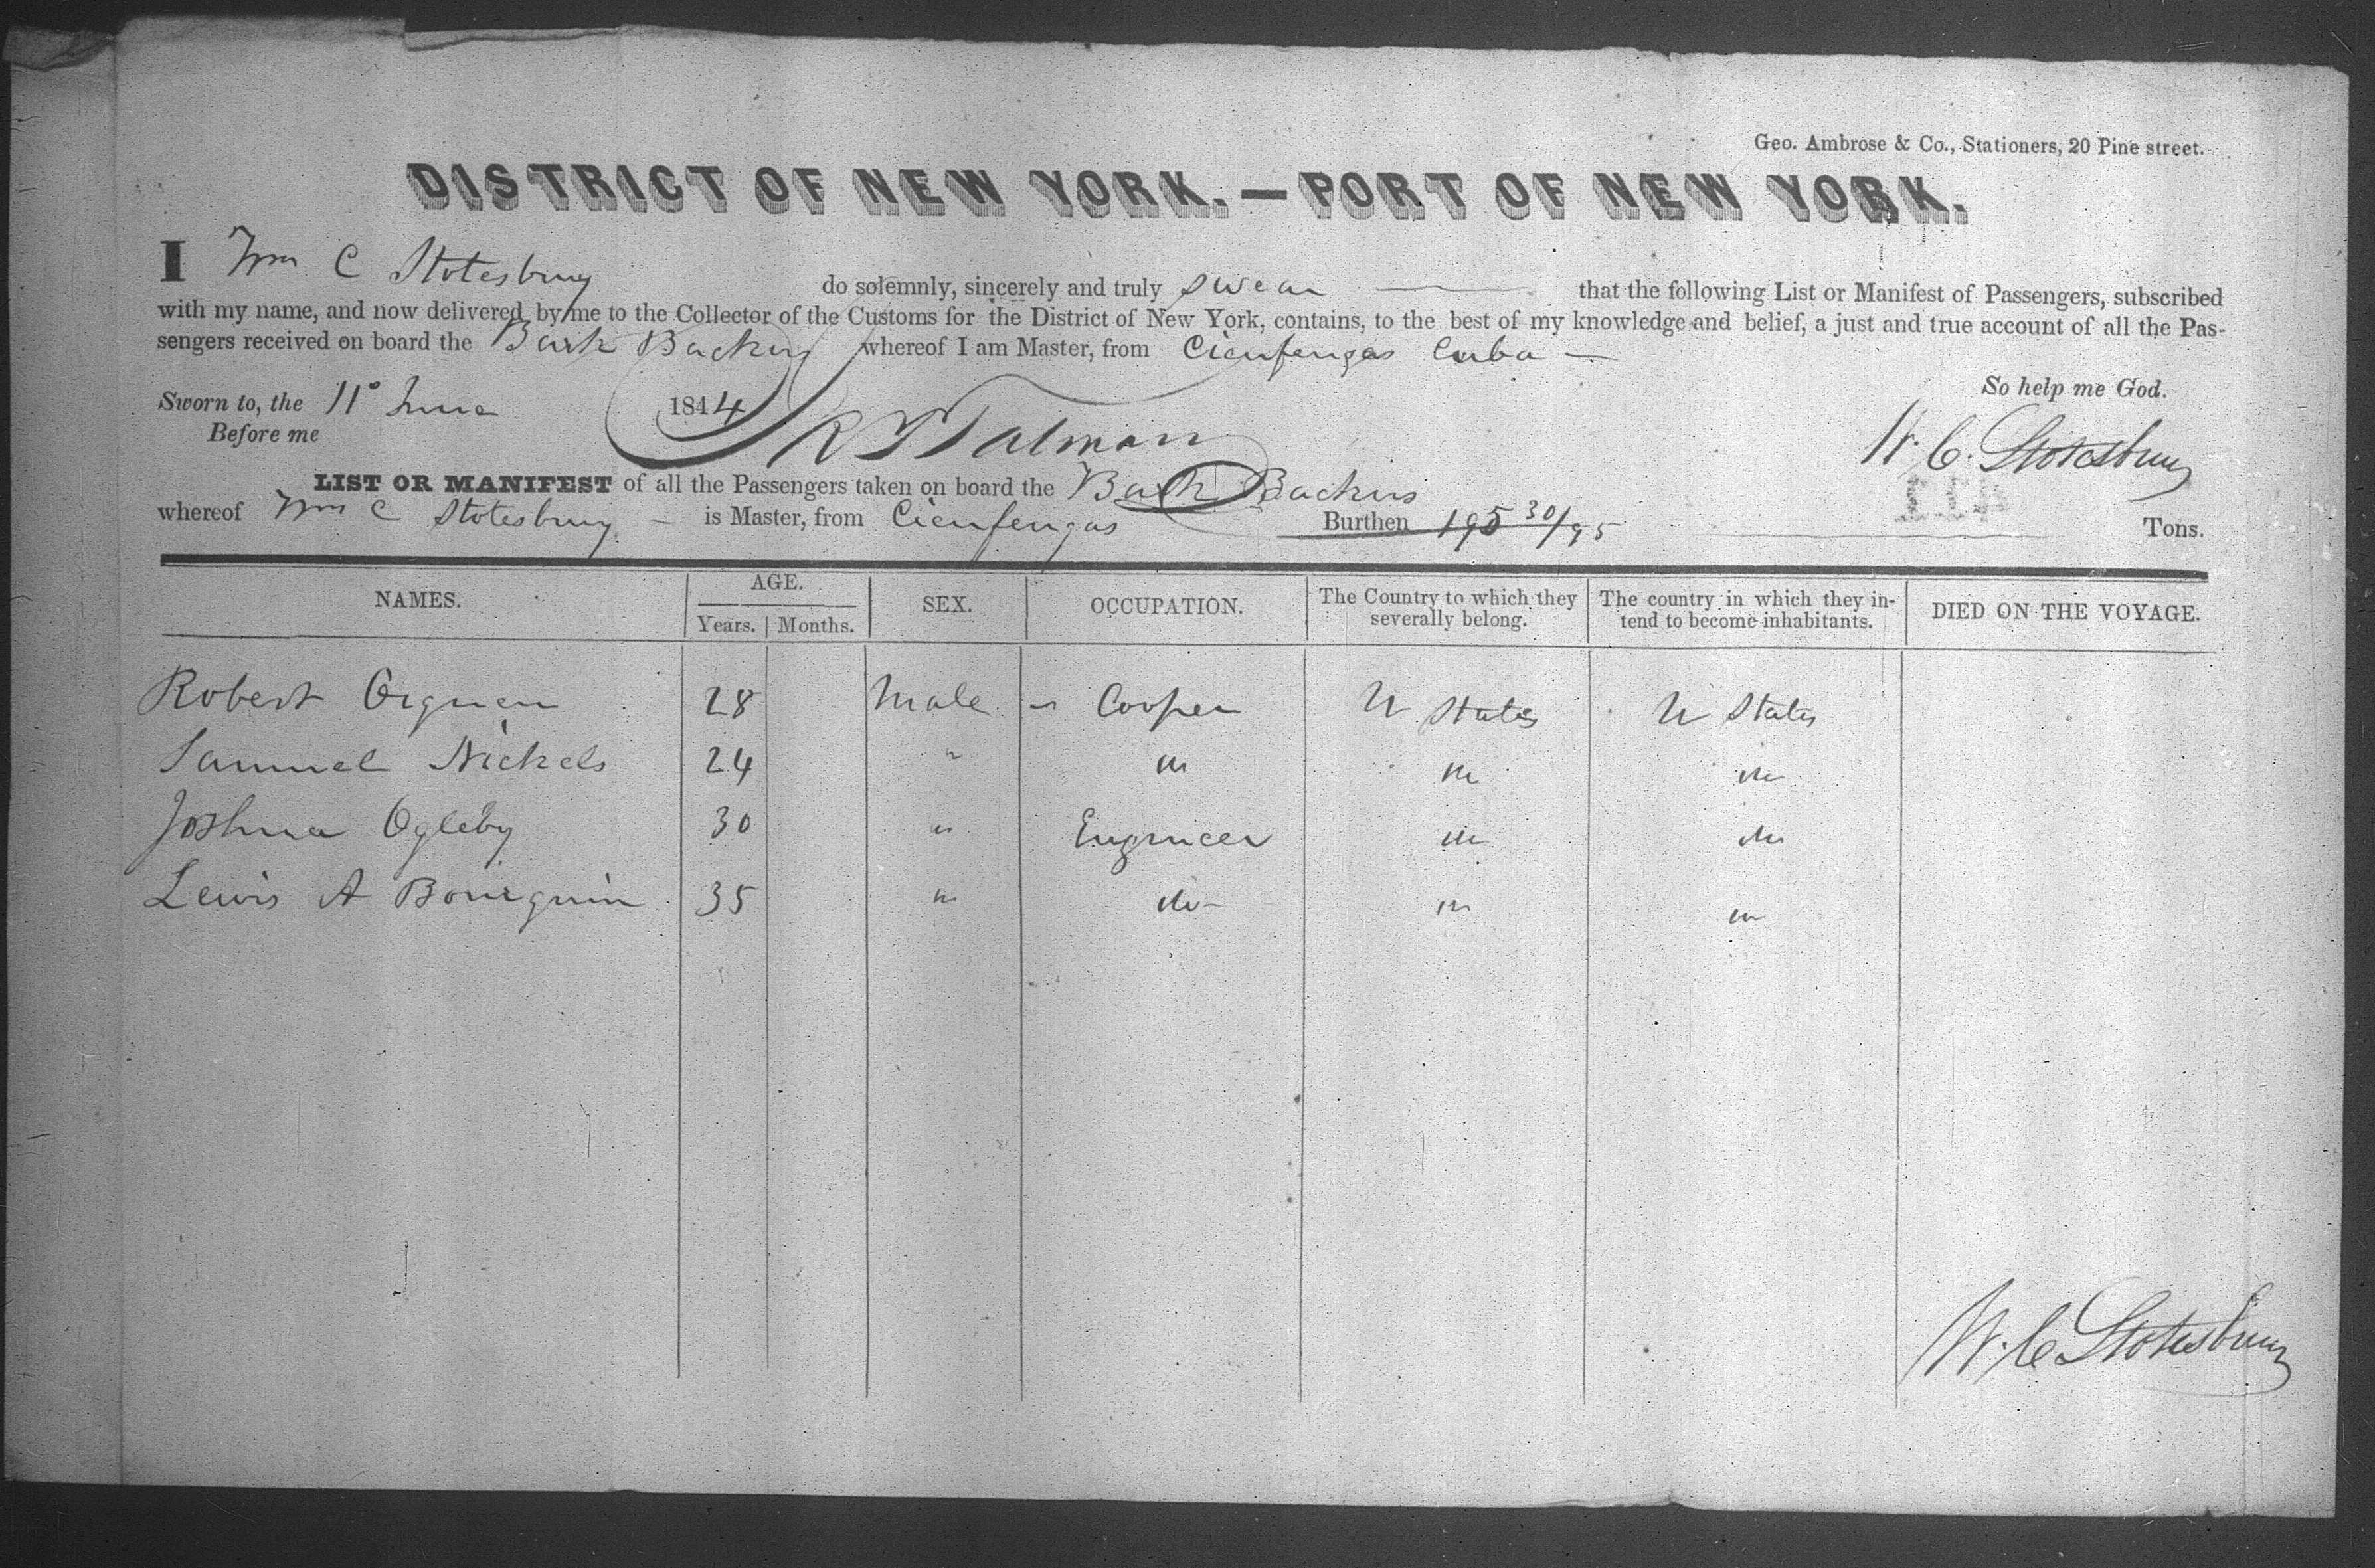 Geo. Ambrose & Co., Stationers, 20 Pine street.
DISTRICT OF NEW YORK.—PORT OF NEW YORK.
I Wm C Stotesbury do solemnly, sincerely and truly swear — that the following List or Manifest of Passengers, subscribed
with my name, and now delivered by me to the Collector of the Customs for the District of New York, contains, to the best of my knowledge and belief, a just and true account of all the Pas-
sengers received on board the Bark Backus whereof I am Master, from Cienfuegas Cuba —
So help me God.
Sworn to, the 11° June 1844
Before me
W. C. Stotesbury
LIST OR MANIFEST of all the Passengers taken on board the Bark Backus
whereof Wm C Stotesbury — is Master, from Cienfuegas Burthen 195 30/95 Tons.
NAMES. AGE. SEX. OCCUPATION. The Country to which they severally belong. The country in which they in-tend to become inhabitants. DIED ON THE VOYAGE.
Years. Months.
Robert 28 Male - Cooper U States U States
Samuel Nickels 24 " " " "
Joshua Ogleby 30 " Engineer " "
Lewis A Bourquin 35 " do - " "
W. C. Stotesbury